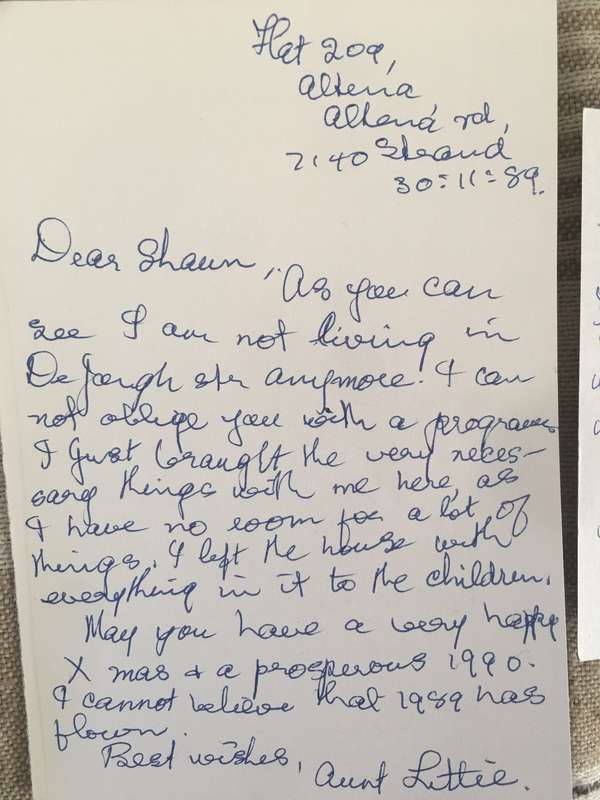 Flat 209,
Altena,
Altena rd,
7140 Strand
30=11=89.
Dear Shaun,
As you can
see I am not living in
De Jongh str anymore! I can
not oblige you with a program
I just braught the very neces-
sary things with me here, as
I have no room for a lot of
things. I left the house with
everything in it to the children.
May you have a very happy
X mas & a prosperous 1990.
I cannot believe that 1989 has
flown.
Best wishes,
Aunt Lettie.